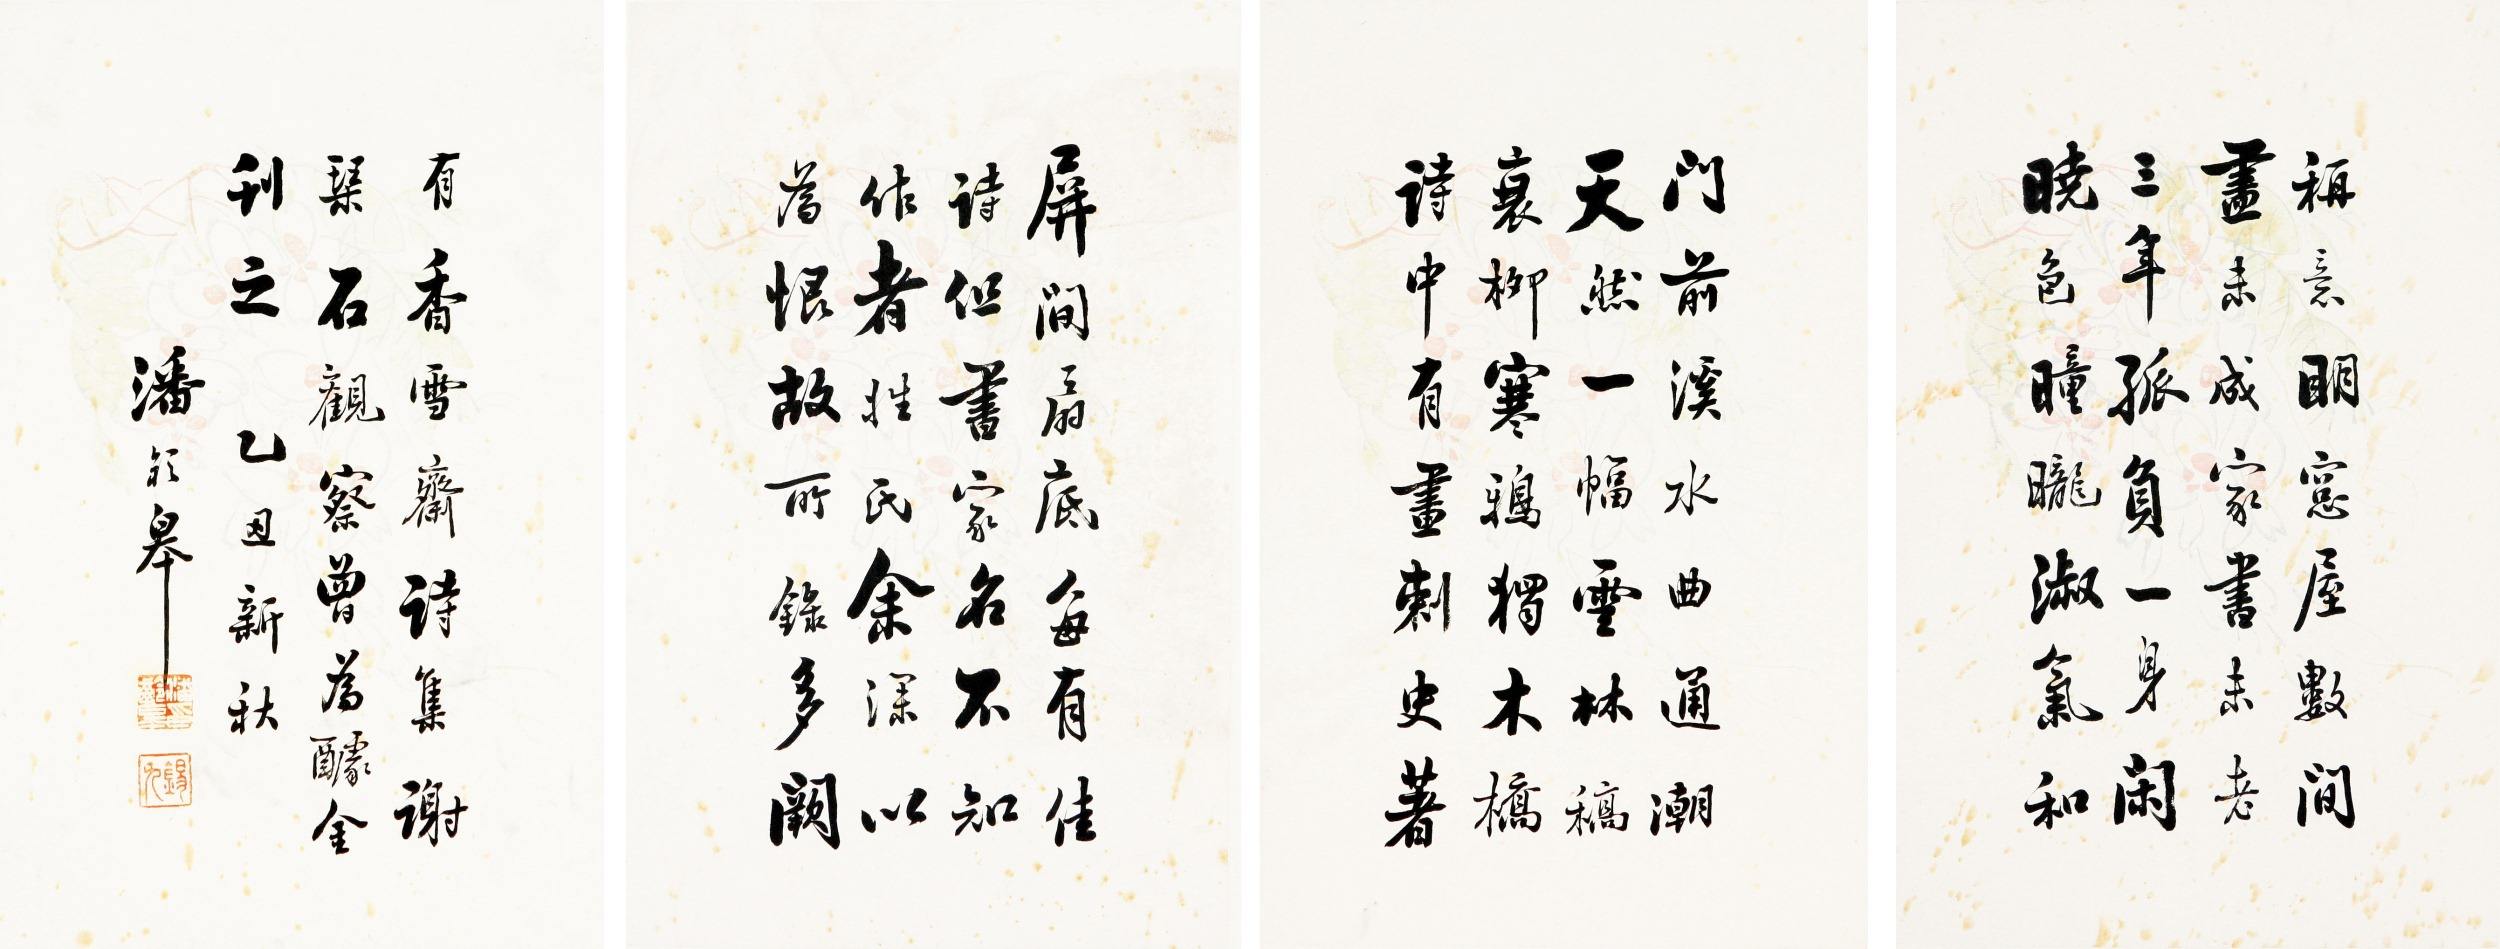 稱意明窓屋數間
畫未成家書未老
三年孤負一身閑
曉色曈曨淑氣和
門前溪水曲通潮
天然一幅雲林稿
衰柳寒鴉獨木橋
詩中有畫刺史著
屏間扇底每有佳
詩但書家名不知
作者姓氏余深以
為恨故所錄多闕
有香雪齋詩集謝
琹石觀察曾為醵金
刊之 乙丑新秋
潘齡皋